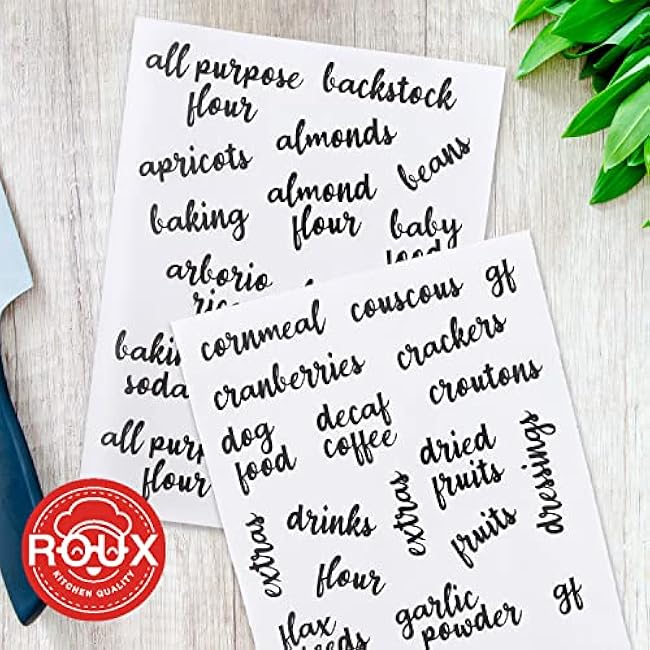 all purpose
flour
backstock
apricots
almonds
beans
baking
almond
flour
baby
food
arborio
rice
baki
soda
all purp
flour
cornmeal
couscous
gf
cranberries
crackers
croutons
dog
food
decaf
coffee
dried
fruits
dressings
extras
drinks
extras
fruits
flour
flax
garlic
powder
gf
ROUX
KITCHEN QUALITY